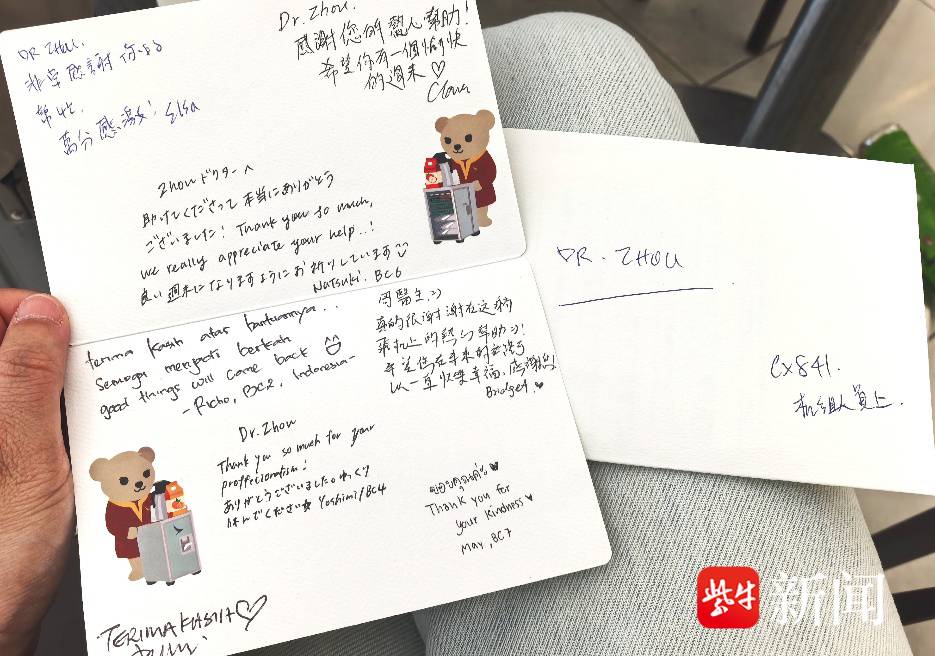 DR ZHOU.
非常感謝你的
萬分感激! Elsa
Dr. Zhou.
感謝您的熱心幫助!
希望你有一個愉快
的週末♡
Zhouドクターへ
助けてくださって本当にありがとう
ございました! Thank you so much,
we really appreciate your help..!
良い週末になりますようにお祈りしています
Natsuki. BC6
terima kasih atas bantuannya..
semoga menjadi berkah
good things will come back
- Richo, BC2, Indonesia -
周醫生:)
真的很谢谢在这
乘机上的热心幫助:)!
希望您在未來的
Bridget.♥
Dr. Zhou
Thank you so much for your
proffecionalism!
ありがとうございました。ゆっくり
休んでください☆ Yoshimi/BC4
ขอบคุณค่ะ♥
Thank you for
your kindness♥
May, BC7
TERIMA KASIH♡
DR. ZHOU
CX841.
机组人員上.
紫牛
新闻